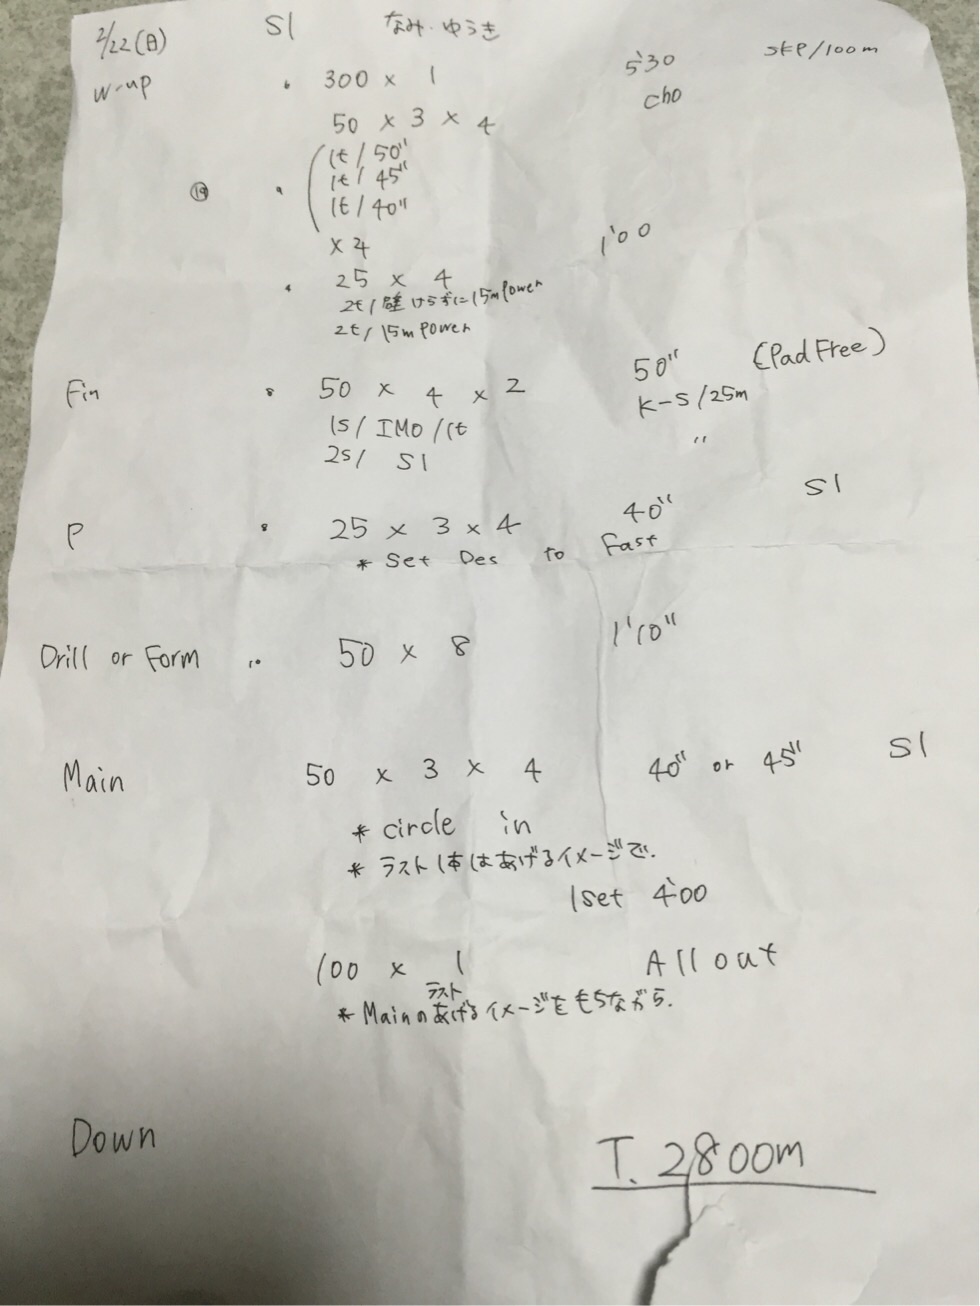 2/22(日) S1 なみ・ゆうき
W-up 300 × 1 5'30 SKP/100m
50 × 3 × 4 cho
⑲ 1t/50"
1t/45"
1t/40"
×4
25 × 4 1'00
2t/壁けらずに15mPower
2t/15mPower
Fin 50 × 4 × 2 50" (Pad Free)
1s/IMO/1t K-S/25m
2s/ S1 "
P 25 × 3 × 4 40" S1
* Set Des to Fast
Drill or Form 50 × 8 1'10"
Main 50 × 3 × 4 40" or 45" S1
* circle in
* ラスト1本はあげるイメージで.
1set 4'00
100 × 1 All out
ラスト
* Mainのあげるイメージをもちながら.
Down
T. 2800m